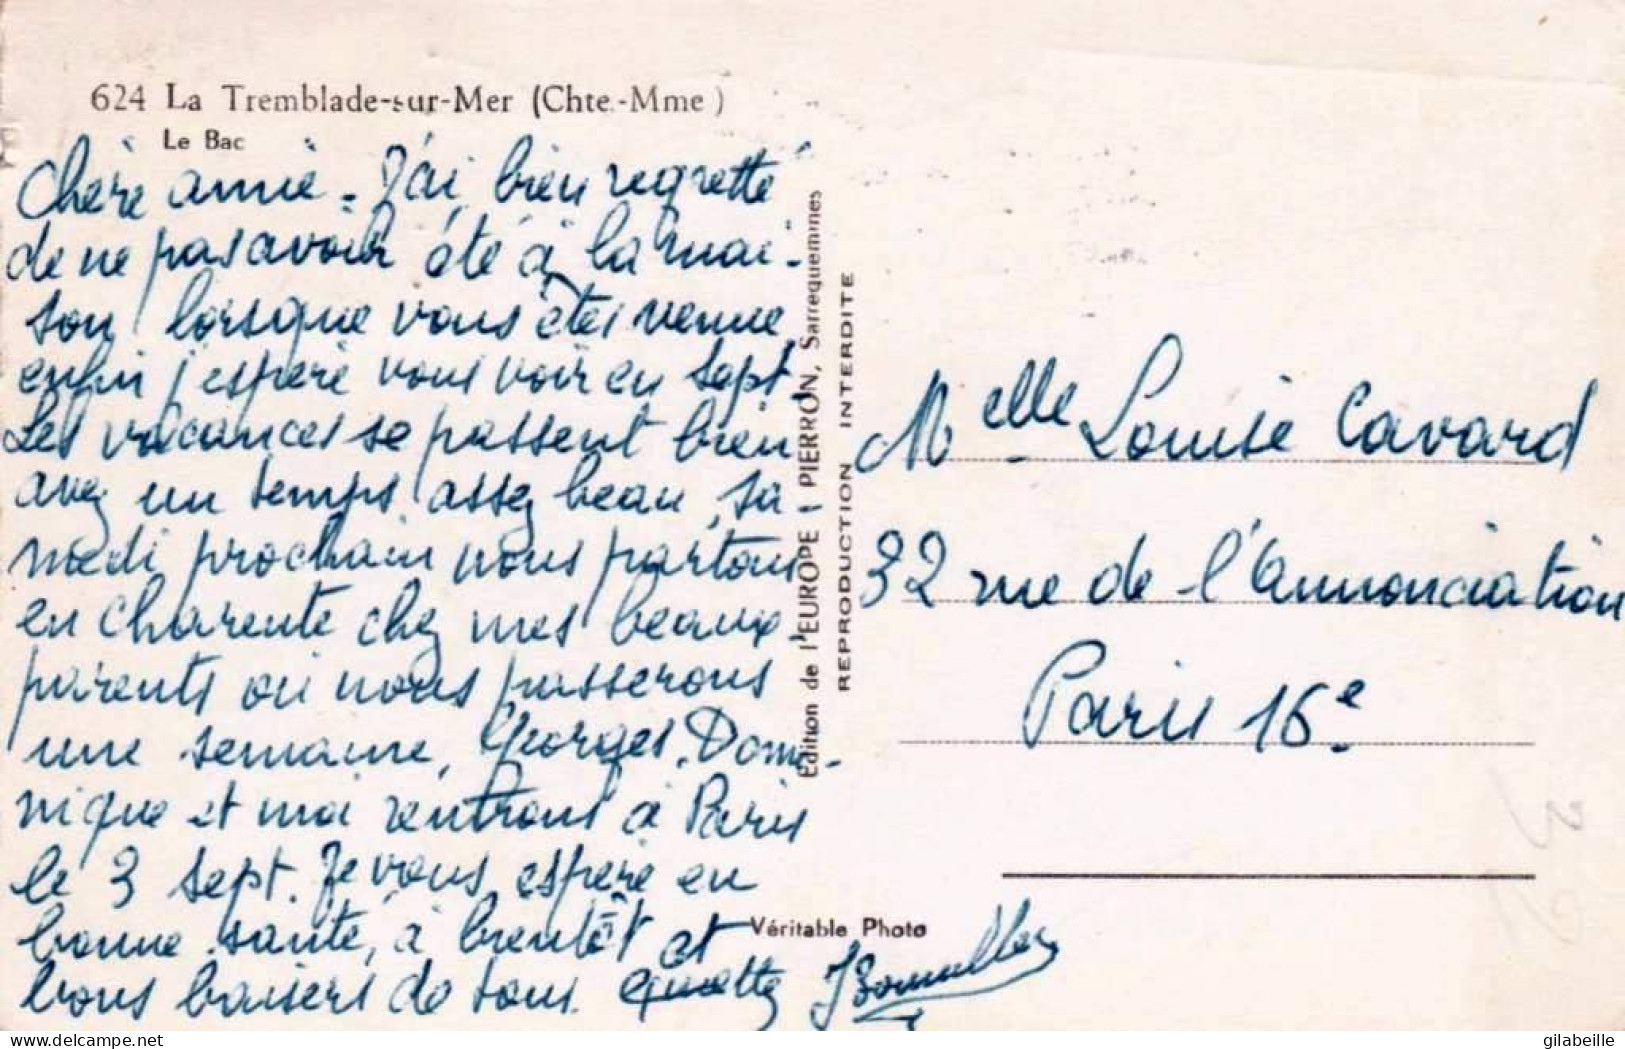 624 La Tremblade-sur-Mer (Chte.-Mme)
Le Bac
Chère amie - J'ai bien regretté
de ne pas avoir été à la mai-
son lorsque vous êtes venue
enfin j'espère vous voir en sept.
Les vacances se passent bien
avez un temps assez beau, sa-
medi prochain nous partons
en charente chez mes beaux-
parents où nous passerons
une semaine, Georges, Domi-
nique et moi rentrons à Paris
le 3 sept. Je vous espère en
bonne santé, à bientôt et
bons baisers de tous.
Edition de l'EUROPE PIERRON, Sarreguemines
REPRODUCTION INTERDITE
Melle Louise Cavard
32 rue de l'Annonciation
Paris 16e
Véritable Photo
32
delcampe.net
gilabeille